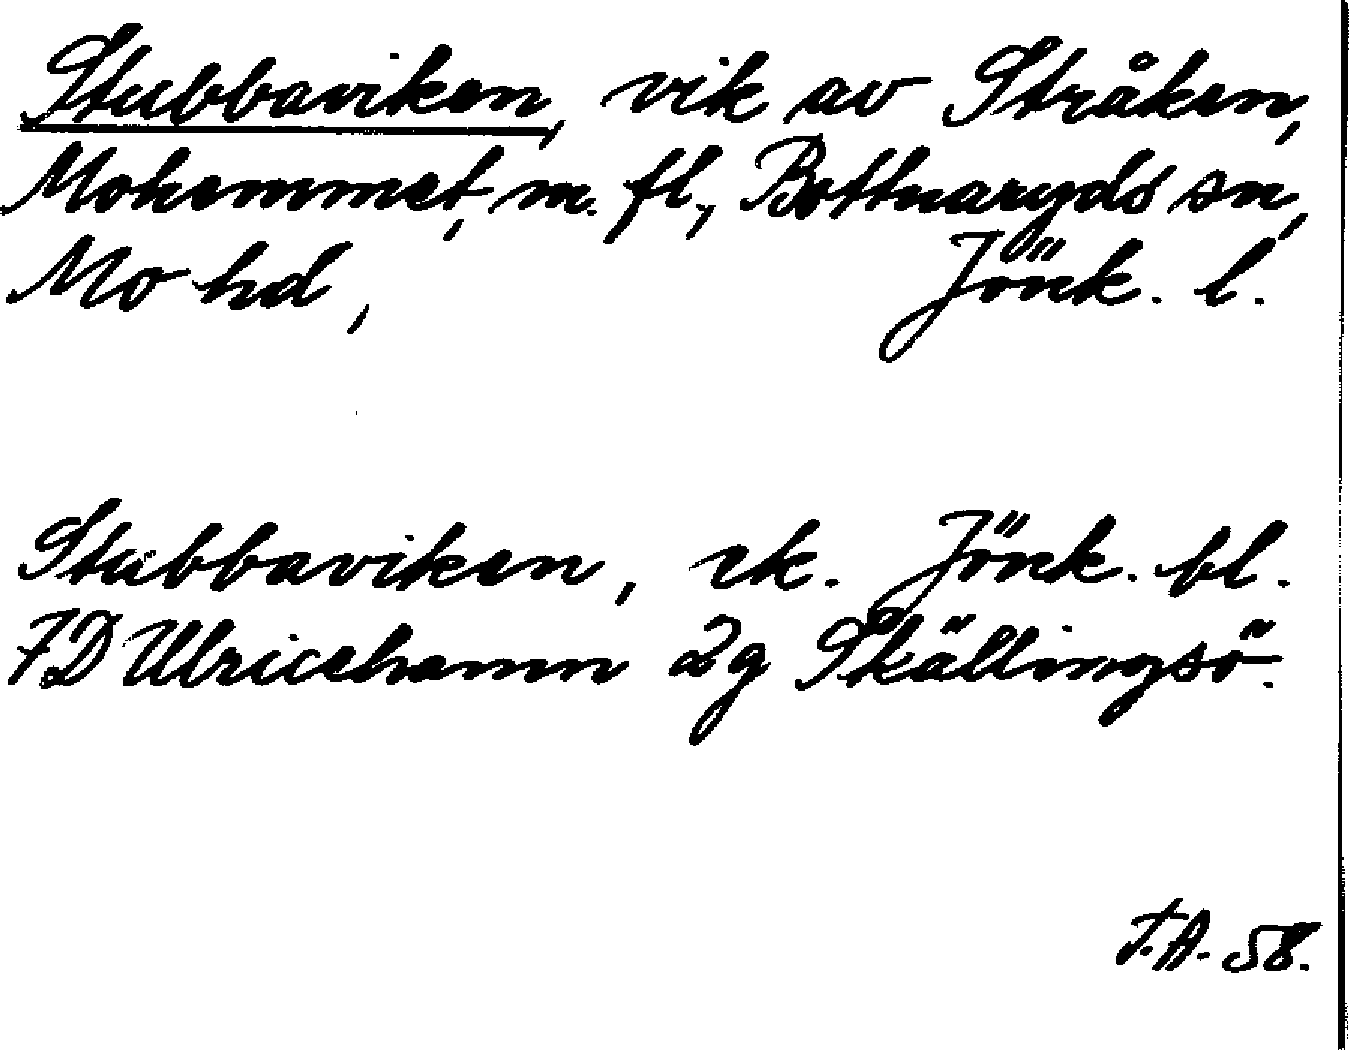 Stubbaviken, vik av Stråken,
Mohemmet, m. fl., Bottnaryds sn,
Mo hd, Jönk. l.
Stubbaviken, ek. Jönk. bl.
7D Ulricehamn 2g Skällingsö.
F.A. 58.